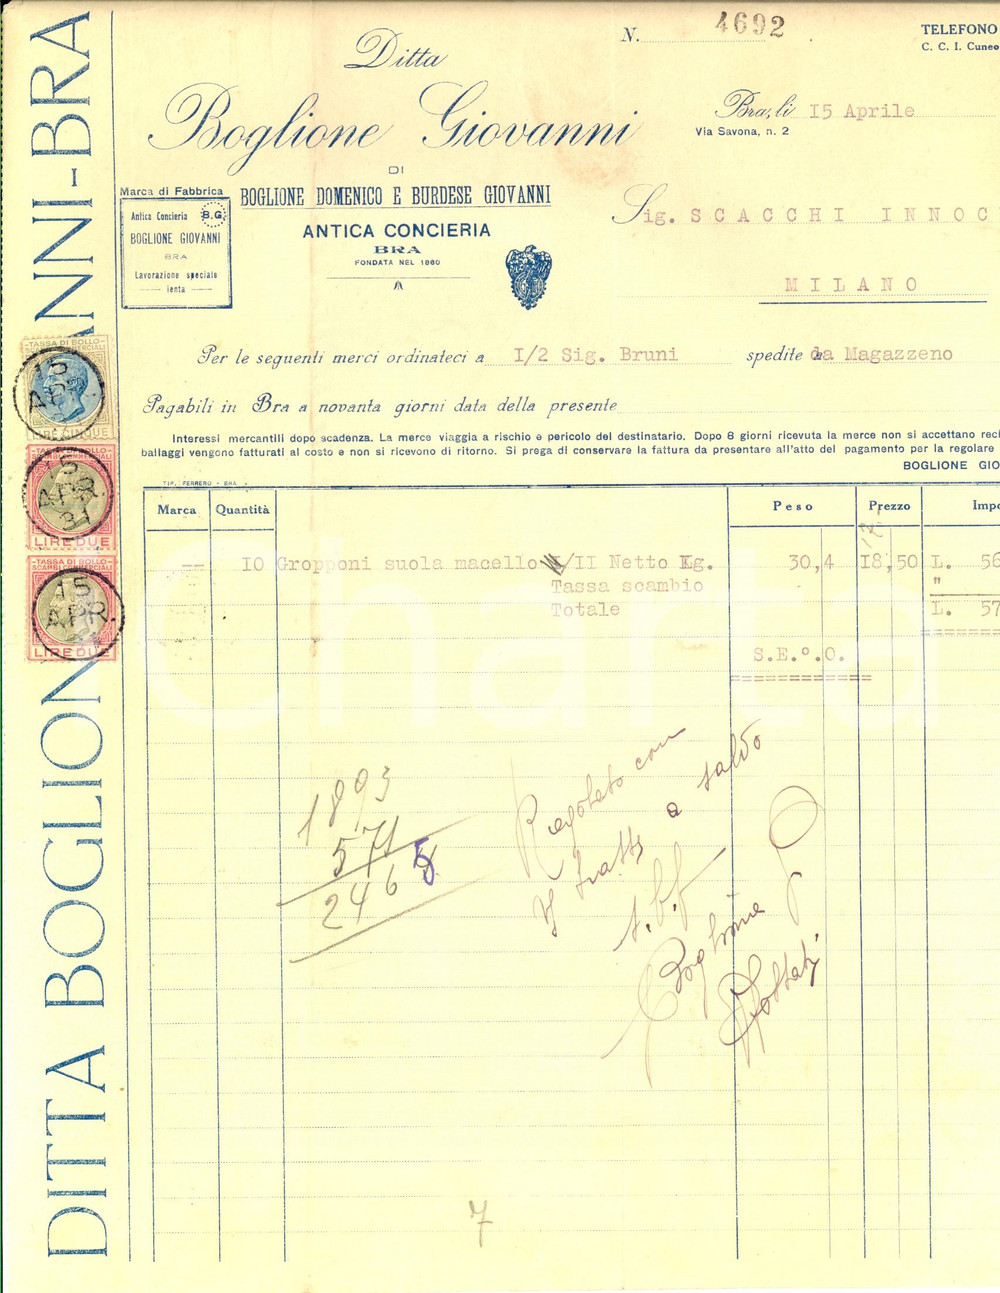 DITTA BOGLION NNI-BRA
N. 4692
TELEFONO
C. C. I. Cuneo
Ditta
Boglione Giovanni
Bra, li 15 Aprile
Via Savona, n. 2
DI
BOGLIONE DOMENICO E BURDESE GIOVANNI
Marca di Fabbrica
Antica Concieria B.G.
BOGLIONE GIOVANNI
BRA
Lavorazione speciale
lenta
ANTICA CONCIERIA
BRA
FONDATA NEL 1860
Sig. SCACCHI INNOC
MILANO
Per le seguenti merci ordinateci a I/2 Sig. Bruni spedite da Magazzeno
Pagabili in Bra a novanta giorni data della presente
Interessi mercantili dopo scadenza. La merce viaggia a rischio e pericolo del destinatario. Dopo 8 giorni ricevuta la merce non si accettano recl
ballaggi vengono fatturati al costo e non si ricevono di ritorno. Si prega di conservare la fattura da presentare all'atto del pagamento per la regolare
BOGLIONE GIO
TIP. FERRERO - BRA
Marca Quantità Peso Prezzo Impo
10 Gropponi suola macello /II Netto Kg. 30,4 18,50 L. 56
Tassa scambio "
Totale L. 57
S.E.°.O.
TASSA DI BOLLO
LIRE CINQUE
15
APR
TASSA DI BOLLO
SCAMBI COMMERCIALI
LIRE DUE
15
APR.
31
TASSA DI BOLLO
SCAMBI COMMERCIALI
LIRE DUE
15
APR.
1893
571
246 5
Regolato con
a saldo
Boglione
7
Charta